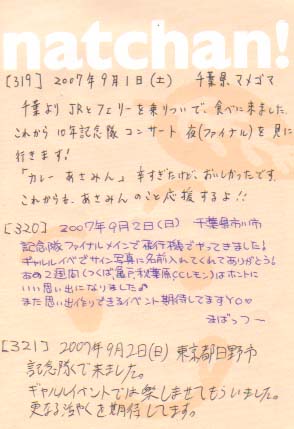 natchan!
[319] 2007年9月1日(土) 千葉県 マメゴマ
千葉より JRとフェリーを乗りついで、食べに来ました。
これから 10年記念隊 コンサート 夜(ファイナル)を見に
行きます!
「カレー あさみん」 辛すぎたけど、おいしかったです。
これからも、あさみんのこと応援するよ!!
[320] 2007年9月2日(日) 千葉県市川市
記念隊ファイナルメインで飛行機でやってきました!
ギャルルイベでサイン写真に名前入れてくれてありがとう!
この2週間(つくば亀戸秋葉原CCレモン)はホントに
いい思い出になりました♪
また思い出作りできるイベント期待してますYO♥
まばっつ〜
[321] 2007年9月2日(日) 東京都日野市
記念隊で来ました。
ギャルルイベントでは楽しませてもらいました。
更なる活やくを期待してます。